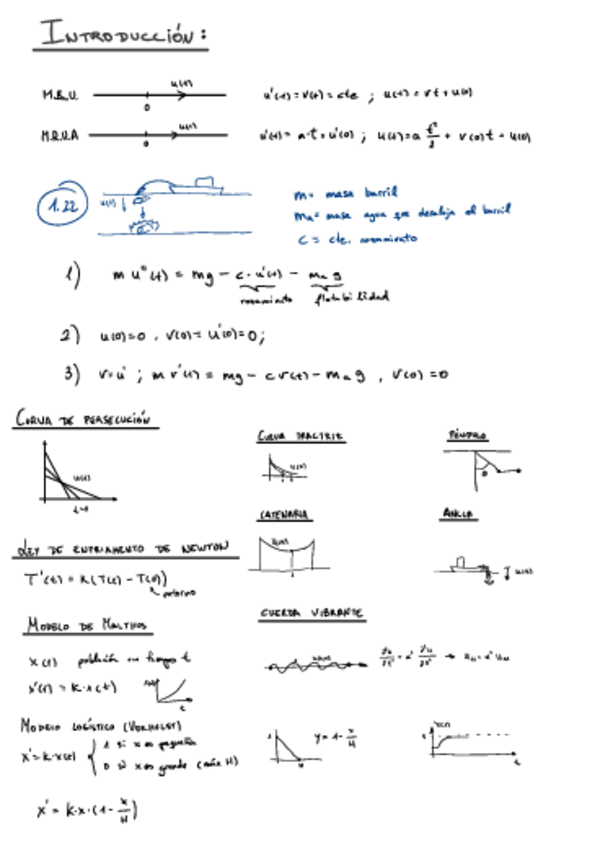 INTRODUCCIÓN:
M.R.U. u(t) 0 u'(t) = v(t) = cte ; u(t) = vt + u(0)
M.R.U.A u(t) 0 u'(t) = a·t + u'(0) ; u(t) = a t²/2 + v(0)t + u(0)
1.22 u(t) m = masa barril
ma = masa agua que desaloja el barril
c = cte. rozamiento
1) m u''(t) = mg - c·u'(t) - ma g
rozamiento flotabilidad
2) u(0)=0 , v(0) = u'(0) = 0;
3) v = u' ; m v'(t) = mg - c v(t) - ma g , v(0) = 0
CURVA DE PERSECUCIÓN
u(x)
CURVA TRACTRIZ
u(x)
PÉNDULO
θ
CATENARIA
u(x)
ANCLA
u(t)
LEY DE ENFRIAMIENTO DE NEWTON
T'(t) = k(T(t) - T(0))
entorno
MODELO DE MALTHUS
x(t) población en tiempo t
x'(t) = k·x(t)
t
CUERDA VIBRANTE
u(x,t)
MODELO LOGÍSTICO (VERHULST)
x' = k·x(t) { 1 si x es pequeña
0 si x es grande (máx M)
1 M y = 1 - x/M
x(t) t
x' = k·x·(1 - x/M)